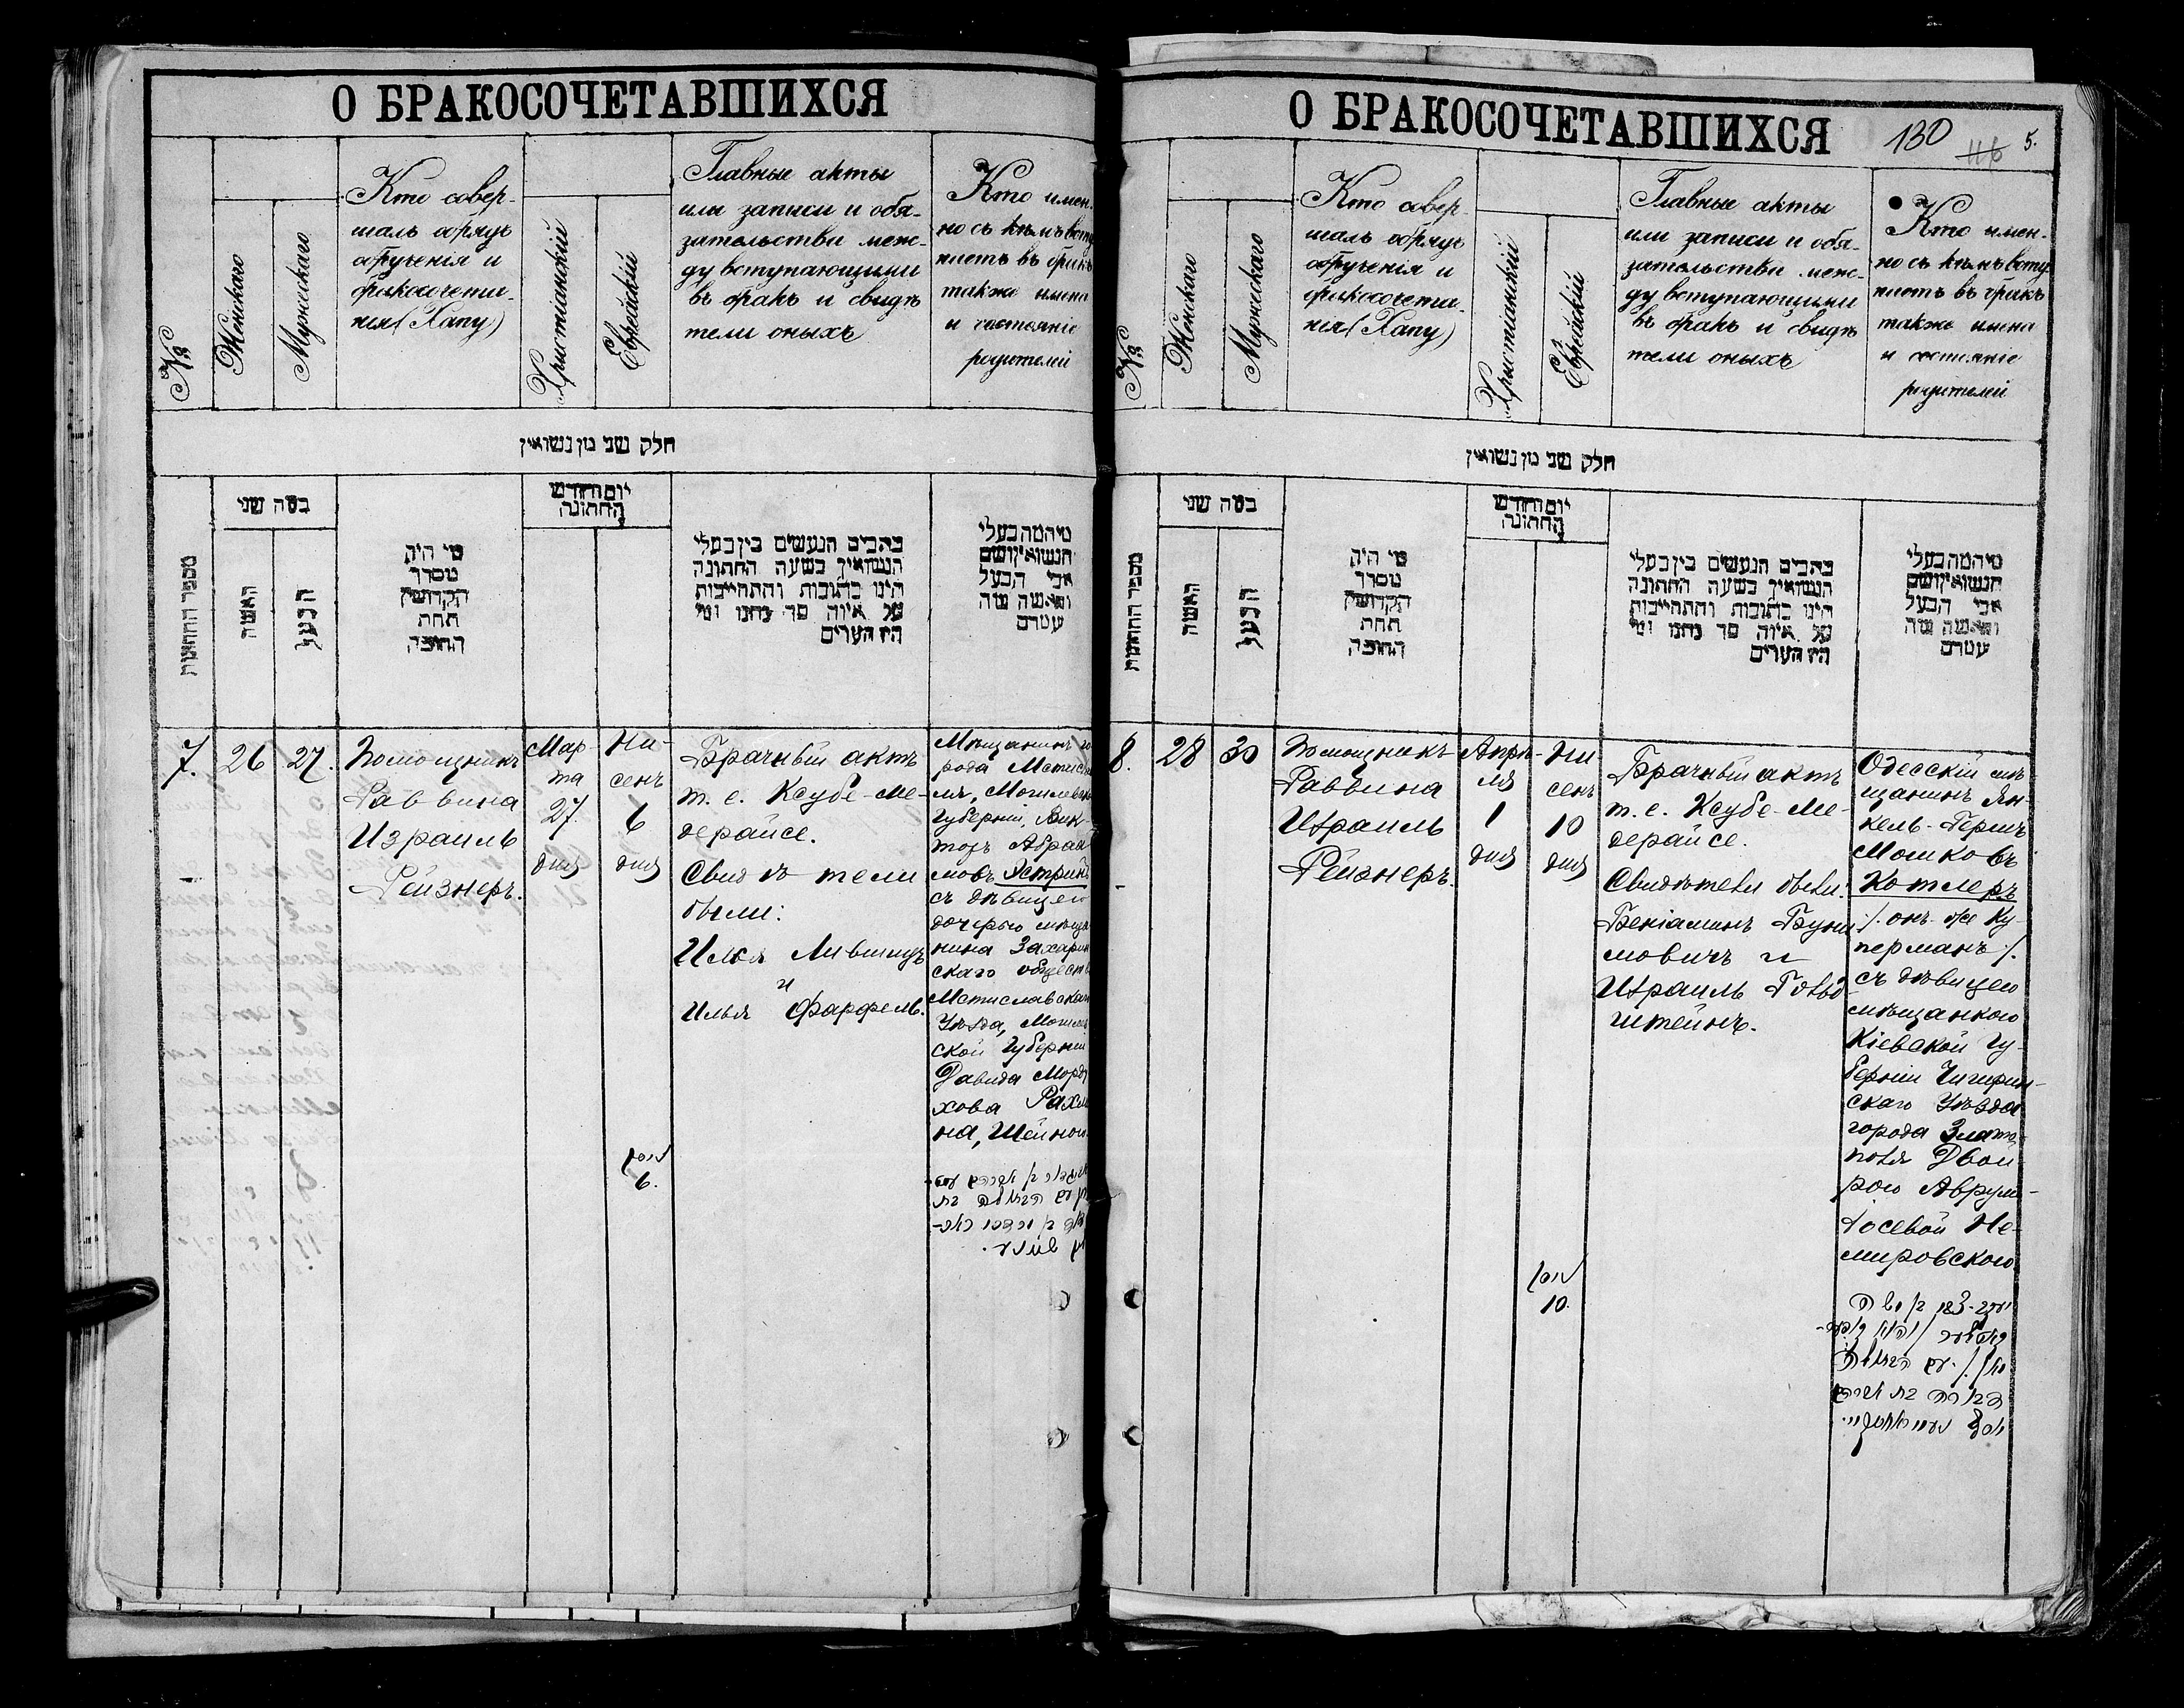 О БРАКОСОЧЕТАВШИХСЯ
№
Женскаго
Мужескаго
Кто совер-
шалъ обрядъ
обрученія и
бракосочета-
нія (Хапу)
Христіанскій
Еврейскій
Главные акты
или записи и обя-
зательства меж-
ду вступающими
въ бракъ и свидѣ
тели оныхъ
Кто имен-
но съ кѣмъ всту
паетъ въ бракъ
также имена
и состояніе
родителей
חלק שני מן נשואין
מספר החתונות
כמה שני
האשה
הבעל
מי היה
מסדר
הקדושין
תחת
החופה
יום וחדש
החתונה
כתבים הנעשים בין בעלי
הנשואין בשעה החתונה
היינו כתובות והתחייבות
על איזה סך נתנו ומי
היו העדים
מי המה בעלי
הנשואין ושם
אבי הבעל
והאשה מה
עמדם
7.
26
27.
Помощникъ
Раввина
Израиль
Рейзнеръ.
Мар-
та
27.
дня
Ни-
санъ
6
дня
ניסן
6.
Брачный актъ
т. е. Ксубе-Ме-
дерайсе.
Свидѣтели
были:
Илья Лившицъ
и
Илья Фарфель.
Мѣщанинъ го
рода Мстисла
ля, Могилевск
Губерніи, Вик-
торъ Абрам
мовъ Эстринъ
съ дѣвицею
дочерью мѣща
нина Захарин
скаго обществ
Мстиславскаго
Уѣзда, Могилев
ской Губерніи
Давида Морду
хова Рахли
на, Шейною.
О БРАКОСОЧЕТАВШИХСЯ
130
116
5.
№
Женскаго
Мужескаго
Кто совер-
шалъ обрядъ
обрученія и
бракосочета-
нія (Хапу)
Христіанскій
Еврейскій
Главные акты
или записи и обя-
зательства меж-
ду вступающими
въ бракъ и свидѣ
тели оныхъ
Кто имен-
но съ кѣмъ всту
паетъ въ бракъ
также имена
и состояніе
родителей
חלק שני מן נשואין
מספר החתונות
כמה שני
האשה
הבעל
מי היה
מסדר
הקדושין
תחת
החופה
יום וחדש
החתונה
כתבים הנעשים בין בעלי
הנשואין בשעה החתונה
היינו כתובות והתחייבות
על איזה סך נתנו ומי
היו העדים
מי המה בעלי
הנשואין ושם
אבי הבעל
והאשה מה
עמדם
8.
28
30
Помощникъ
Раввина
Израиль
Рейзнеръ.
Апрѣ-
ля
1
дня
Ни
санъ
10
дня
ניסן
10.
Брачный актъ
т. е. Ксубе-Ме-
дерайсе.
Свидѣтели были:
Беніаминъ Буни
мовичъ и
Израиль Гольд-
штейнъ.
Одесскій мѣ
щанинъ Ян-
кель-Гершъ
Мошковъ
Котлеръ
/. онъ-же Ку-
перманъ /.
съ дѣвицею
мѣщанкою
Кіевской Гу-
берніи Чигирин-
скаго Уѣзда
города Злато-
поля Двой-
рою Аврум-
Іосевой Не-
мировскою